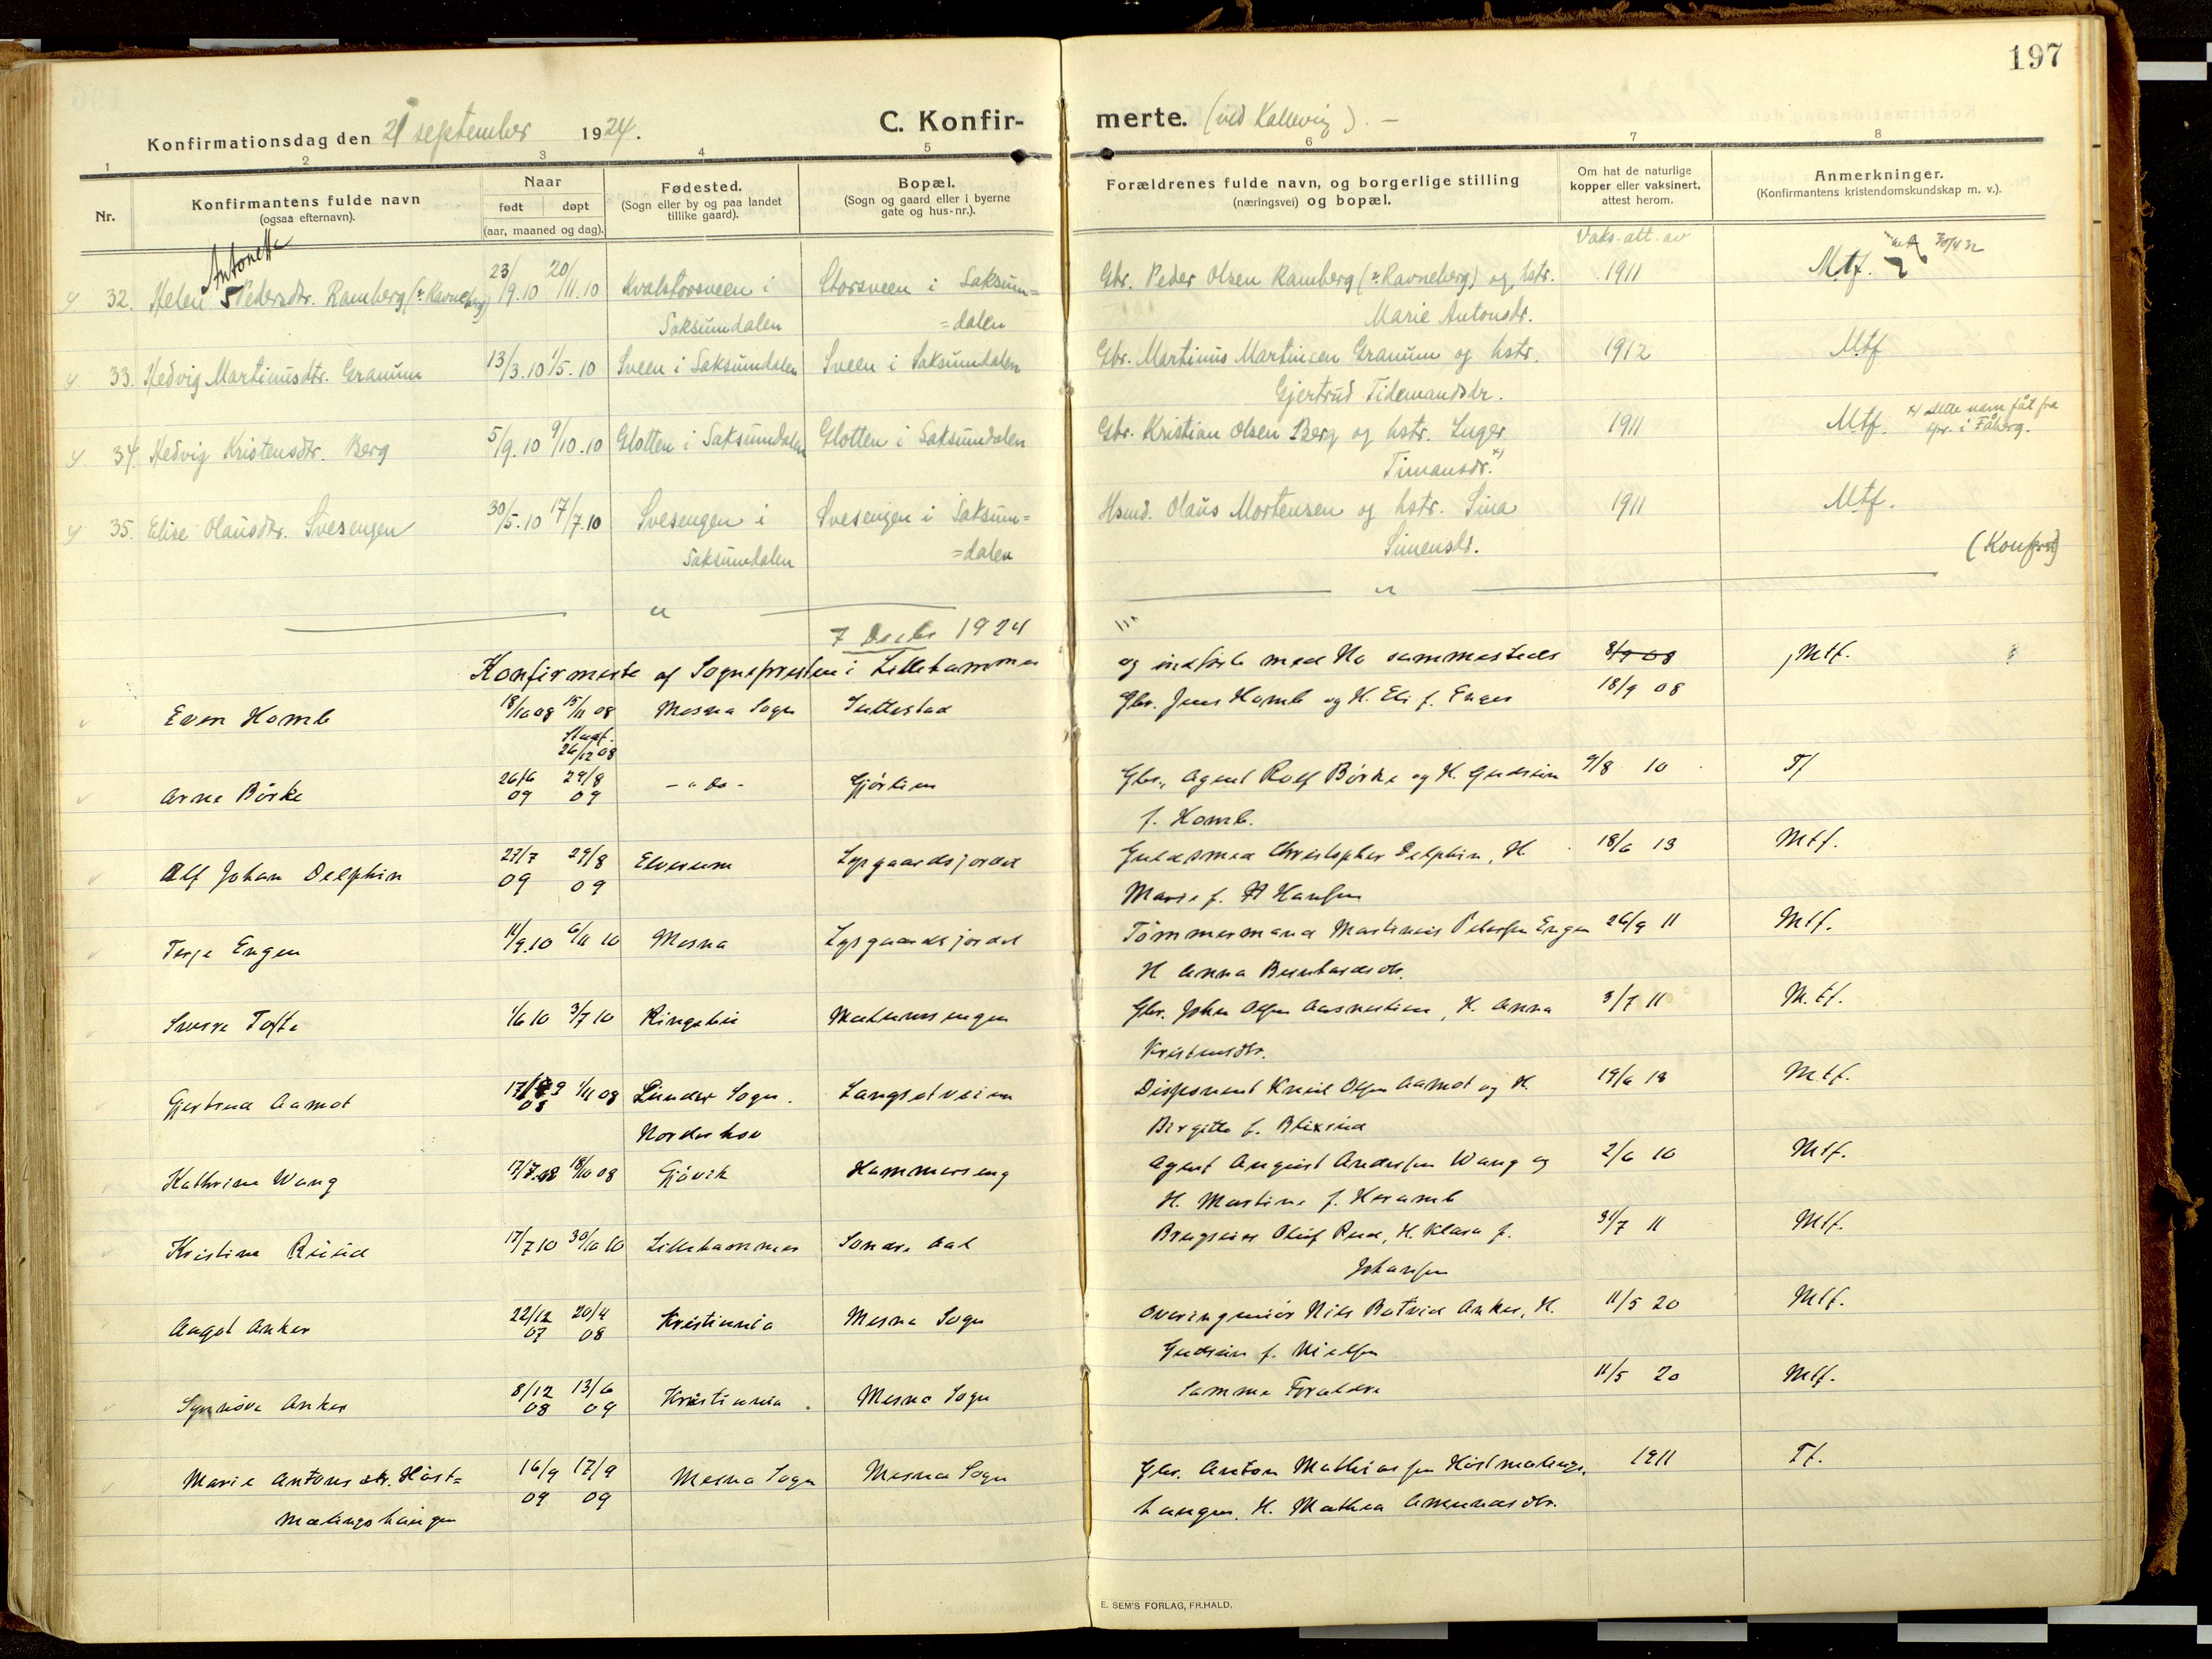 197
Konfirmationsdag den 21 september 1924. C. Konfirmerte. (ved Kallevig). —
1 2 3 4 5 6 7 8
Nr. Konfirmantens fulde navn (ogsaa efternavn). Naar født døpt (aar, maaned og dag). Fødested. (Sogn eller by og paa landet tillike gaard). Bopæl. (Sogn og gaard eller i byerne gate og hus-nr.). Forældrenes fulde navn, og borgerlige stilling (næringsvei) og bopæl. Om hat de naturlige kopper eller vaksinert, attest herom. Anmerkninger. (Konfirmantens kristendomskundskap m. v.).
Vaks. att. av
Antonette 30/4 32
32. Helen Pedersdtr. Ramberg (Ravneberg) 23/9.10 20/11.10 Kvalstorsveen i Storsveen i Saksum= Gbr. Peder Olsen Ramberg (Ravneberg) og hstr. 1911 Mtf.
Saksumdalen =dalen Marie Antonsdr.
33. Hedvig Martinusdtr. Granum 13/3.10 1/5.10 Sveen i Saksumdalen Sveen i Saksumdalen Gbr. Martinus Martinsen Granum og hstr. 1912 Mtf
Gjertrud Tidemandsdr.
34. Hedvig Kristensdtr. Berg 5/9.10 9/10.10 Glotten i Saksumdalen Glotten i Saksumdalen Gbr. Kristian Olsen Berg og hstr. Inger 1911 Mtf. x) dette navn fåt fra spr. i Fåberg.
Timansdr. x)
35. Elise Olausdtr. Svesengen 30/5.10 17/7.10 Svesengen i Svesengen i Saksum= Hsmd. Olaus Mortensen og hstr. Sina 1911 Mtf.
Saksumdalen =dalen Simensdr.
7 Decbr 1924
Konfirmerte af Sognepresten i Lillehammer og indførte med No sammesteds 8/9 08 Mtf.
Even Homb 18/10 08 15/11 08 Mesna Sogn Suttestad Gbr. Jens Homb og H. Eli f. Enger 18/9 08
26/12 08
Arne Börke 26/6 09 29/8 09 - " do - Gjörlien Gbr., Agent Rolf Börke og H. Gudrun 9/8 10 Tf
f. Homb.
Alf Johan Delphin 27/7 09 29/8 09 Elverum Lysgaardsjordet Guldsmed Christopher Delphin, H. 18/6 13 Mtf.
Marie f. Hansen
Terje Engen 11/9.10 6/11 10 Mesna Lysgaardsjordet Tömmermand Martinius Petersen Engen 26/9 11 Mtf.
H. Anna Berntsdr.
Sverre Tofte 1/6 10 3/7 10 Ringebu Gbr. Johan Olsen, H. Anna 3/7 11 M.tf.
Kristensdtr.
Gjertrud Aamot 08 1/11 08 Lunder Sogn. Langsetveien Disponent Knud Olsen Aamot og H. 19/6 18 M.tf.
Norderhov Birgitte f. Blixrud
Kathrine Wang 17/7.08 18/10 08 Gjövik Hammerseng Agent August Andersen Wang og 2/6 10 Mtf.
H. Martine f. Haramb
Kristine Ruud 17/7 10 30/10 10 Lillehammer Söndre Aal Brugseier Oluf Rud, H. Klara f. 31/7 11 Mtf.
Johansen
Aagot Anker 22/12 07 20/4 08 Kristiania Mesna Sogn Overingeniör Nils Botvid Anker, H. 11/5 20 Mtf.
Gudrun f. Nielsen
Synnöve Anker 8/12 08 13/6 09 Kristiania Mesna Sogn Samme Forældre 11/5 20 Mtf.
Marie Antonsdtr. Höst= 16/9 09 17/9 09 Mesna Sogn Mesna Sogn Gbr. Anton Mathiassen Höstmælings. 1911 Tf.
mælingshaugen haugen, H. Mathea Amundsdtr.
E. SEM'S FORLAG, FR.HALD.